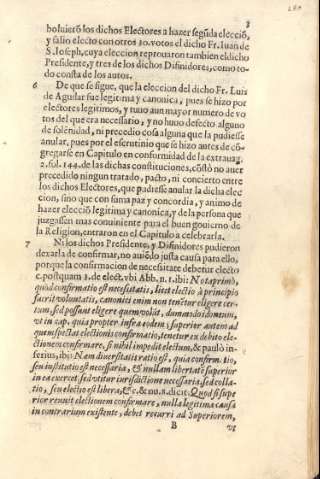 3
boluierõ los dichos Electores a hazer segũda elecciõ,
y salio electo con otros 20. votos el dicho Fr. Iuan de
S. Ioseph, cuya eleccion reprouaron tambien el dicho
Presidente, y tres de los dichos Difinidores, como to-
do consta de los autos.
6 De que se sigue, que la eleccion del dicho Fr. Luis
de Aguilar fue legitima y canonica, pues se hizo por
electores legitimos, y tuuo aun mayor numero de vo
tos del que era necessario, y no huuo defecto alguno
de solẽnidad, ni precedio cosa alguna que la pudiesse
anular, pues por el escrutinio que se hizo antes de cõ-
gregarse en Capitulo en conformidad de la extrauag.
2. fol. 144. de las dichas constituciones, cõstò no auer
precedido ningun tratado, pacto, ni concierto entre
los dichos Electores, que pudiesse anular la dicha elec
cion, sino que con suma paz y concordia, y animo de
hazer eleccion legitima y canonica, y de la persona que
juzgassen mas conuiniente para el buen gouierno de
la Religion, entraron en el Capitulo a celebrarla.
7 Ni los dichos Presidente, y Difinidores pudieron
dexarla de confirmar, no auiẽdo justa causa para ello,
porque la confirmacion de necessitate debetur electo
c. postquam 3. de elect. vbi Abb. n. 1. ibi: Nota primò,
quod confirmatio est necessitatis, licet electio à principio
sit voluntatis, canonici enim non tenetur eligere cer-
tum, sed possunt eligere quem volũt, dum modo idoneum,
vt in cap. quia propter infra eodem, superior autem ad
quem spectat electionis confirmatio, tenetur ex debito ele-
ctionem confirmare, si nihil impedit electum, & paulò in-
ferius, ibi: Nam diuersitatis ratio est, quia confirmatio,
seu institutio est necessaria, & nullam libertatẽ superior
in ea exercet, sed vtitur iurisdictione necessaria, sed colla-
tio, seu electio est libera, &c. & nu. 8. dicit: Quod si supe
rior renuit electionem confirmare, nulla legitima causa
in contrarium existente, debet recurri ad Superiorem,
B vt